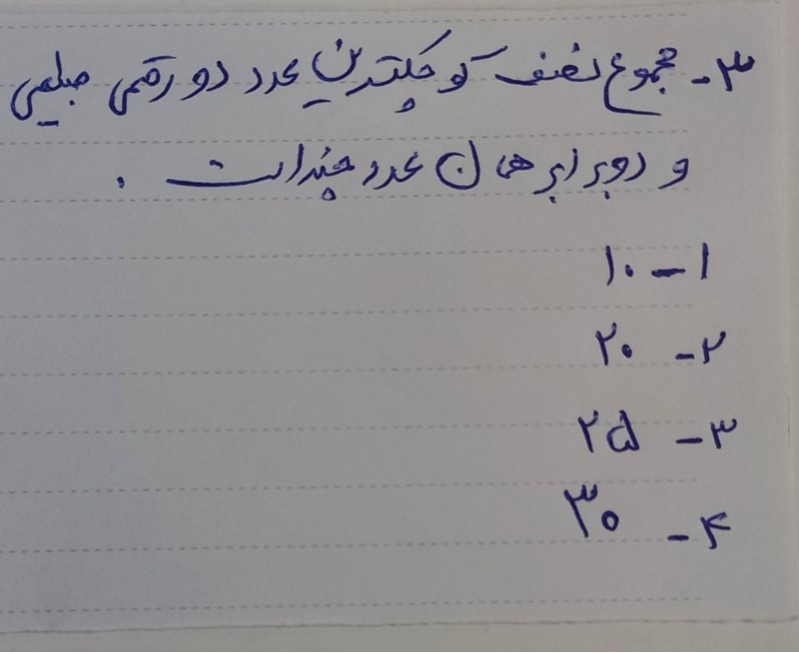 ۳- مجموع نصف کوچکترین عدد دو رقمی طبیعی
و دوبرابر همان عدد چند است .
۱- ۱۰
۲- ۲۰
۳- ۲۵
۴- ۳۰